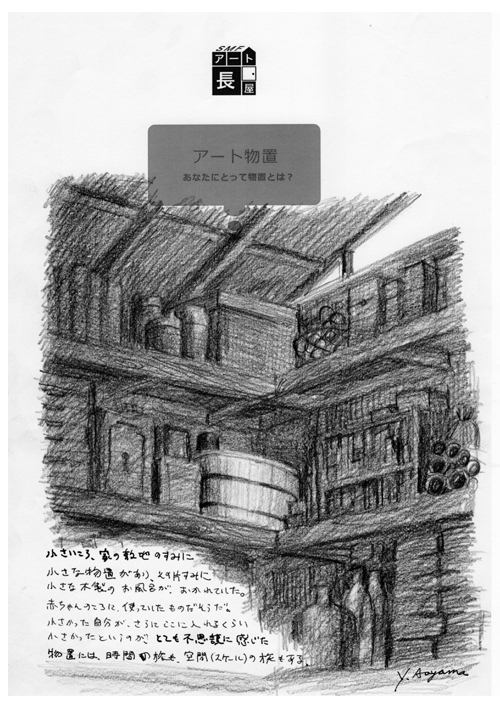 SMF
アート
長屋
アート物置
あなたにとって物置とは？
小さいころ、家の敷地のすみに
小さな物置があり、その片すみに
小さな木製のお風呂が、おかれていた。
赤ちゃんのころに、使っていたものだそうだ。
小さかった自分が、さらにここに入れるくらい
小さかったというのが とても不思議に感じた
物置には、時間の旅も、空間(スケール)の旅もする。
Y. Aoyama